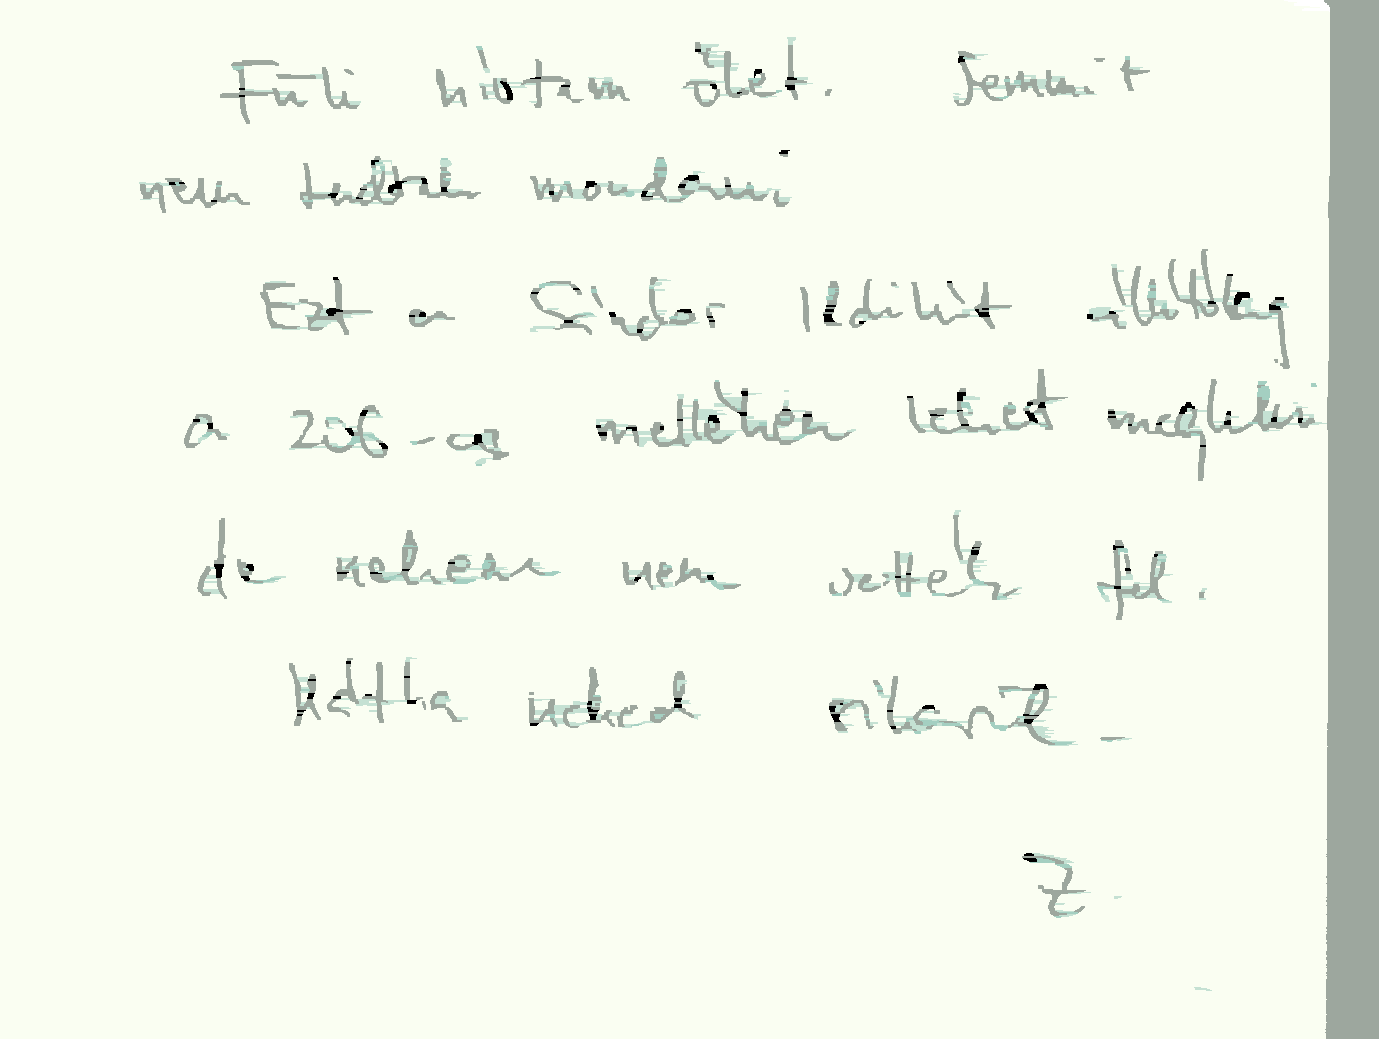 Füli hívtam őket. Semmit
nem tudtak mondani
Ezt a Sándor Ildikót állítólag
a 206-os melléken lehet meglelni
de nekem nem vettek fel.
Hátha neked sikerül -
Z.